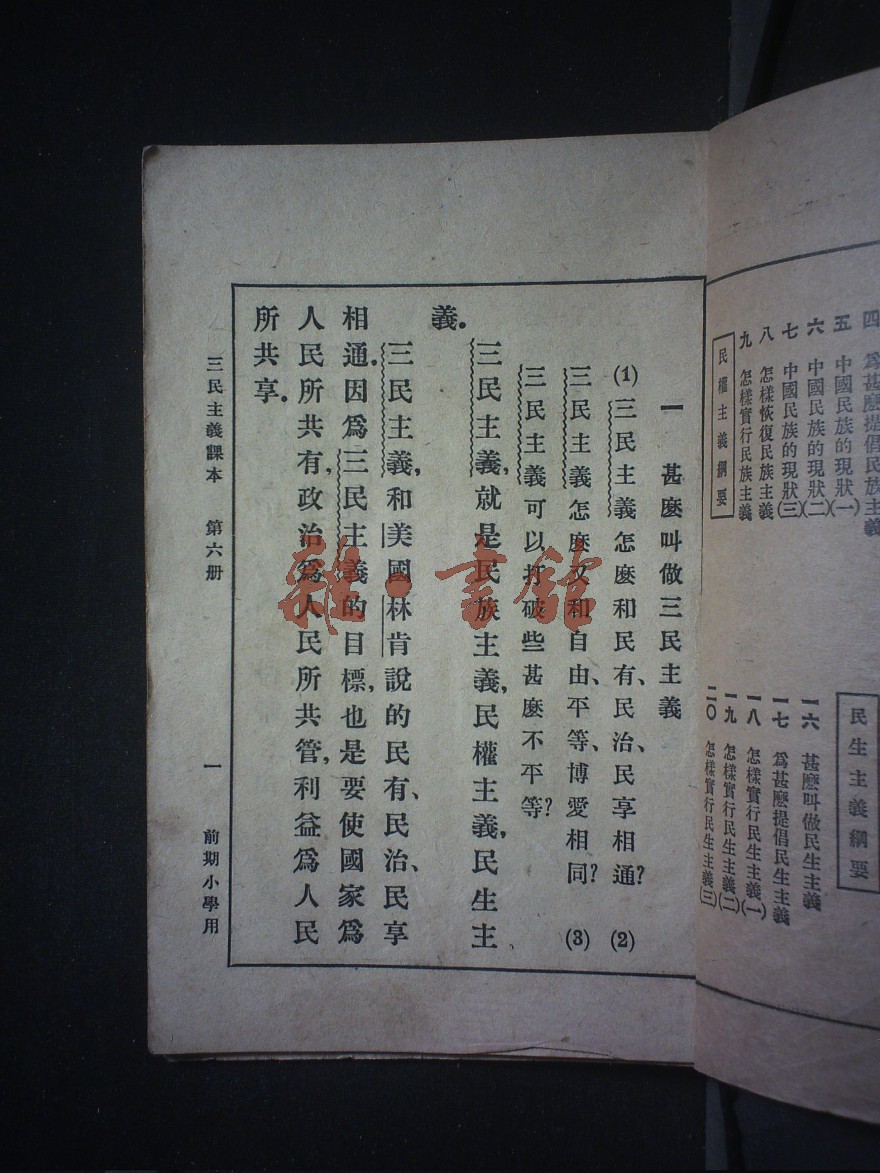 四　爲甚麼提倡民族主義
五　中國民族的現狀(一)
六　中國民族的現狀(二)
七　中國民族的現狀(三)
八　怎樣恢復民族主義
九　怎樣實行民族主義
民權主義綱要
民生主義綱要
一六　甚麼叫做民生主義
一七　爲甚麼提倡民生主義
一八　怎樣實行民生主義(一)
一九　怎樣實行民生主義(二)
二〇　怎樣實行民生主義(三)
一　甚麼叫做三民主義
(1)三民主義怎麼和民有、民治、民享相通？　(2)
三民主義怎麼又和自由、平等、博愛相同？　(3)
三民主義可以打破些甚麼不平等？
三民主義，就是民族主義，民權主義，民生主
義。
三民主義，和美國林肯說的民有、民治、民享
相通。因爲三民主義的目標，也是要使國家爲
人民所共有，政治爲人民所共管，利益爲人民
所共享。
三民主義課本　第六册　一　前期小學用
雜·書館